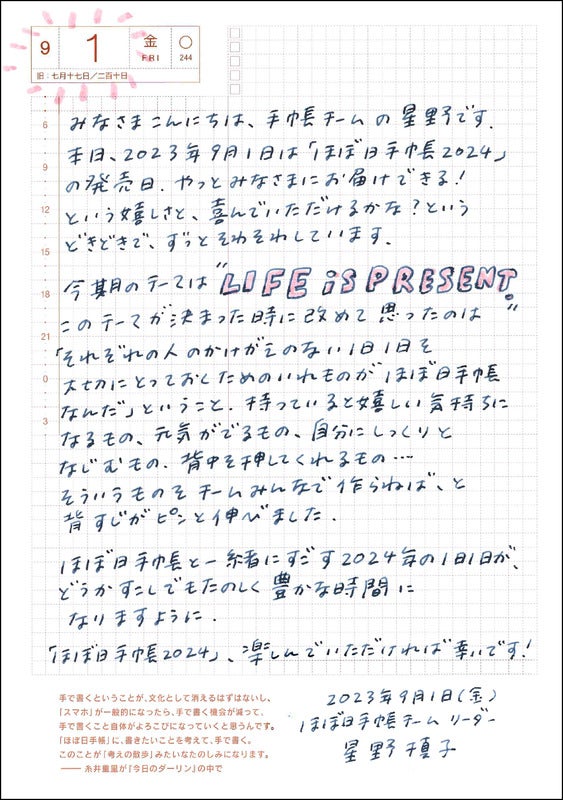 9 1 金 ○
FRI 244
旧:七月十七日/二百十日
6
みなさまこんにちは、手帳チームの星野です。
本日、2023年9月1日は「ほぼ日手帳2024」
9
の発売日。やっとみなさまにお届けできる!
12
という嬉しさと、喜んでいただけるかな?という
どきどきで、ずっとそわそわしています。
15
今期のテーマは“LIFE iS PRESENT.”
18
このテーマが決まった時に改めて思ったのは
21
「それぞれの人のかけがえのない1日1日を
0
大切にとっておくためのいれものがほぼ日手帳
なんだ」ということ。持っていると嬉しい気持ちに
3
なるもの、元気がでるもの、自分にしっくりと
なじむもの。背中を押してくれるもの…
そういうものをチームみんなで作らねば、と
背すじがピンと伸びました。
ほぼ日手帳と一緒にすごす2024年の1日1日が、
どうかすこしでもたのしく豊かな時間に
なりますように。
「ほぼ日手帳2024」、楽しんでいただければ幸いです!
2023年9月1日(金)
ほぼ日手帳チームリーダー
星野槙子
手で書くということが、文化として消えるはずはないし、
「スマホ」が一般的になったら、手で書く機会が減って、
手で書くこと自体がよろこびになっていくと思うんです。
「ほぼ日手帳」に、書きたいことを考えて、手で書く。
このことが「考えの散歩」みたいなたのしみになります。
—— 糸井重里が『今日のダーリン』の中で